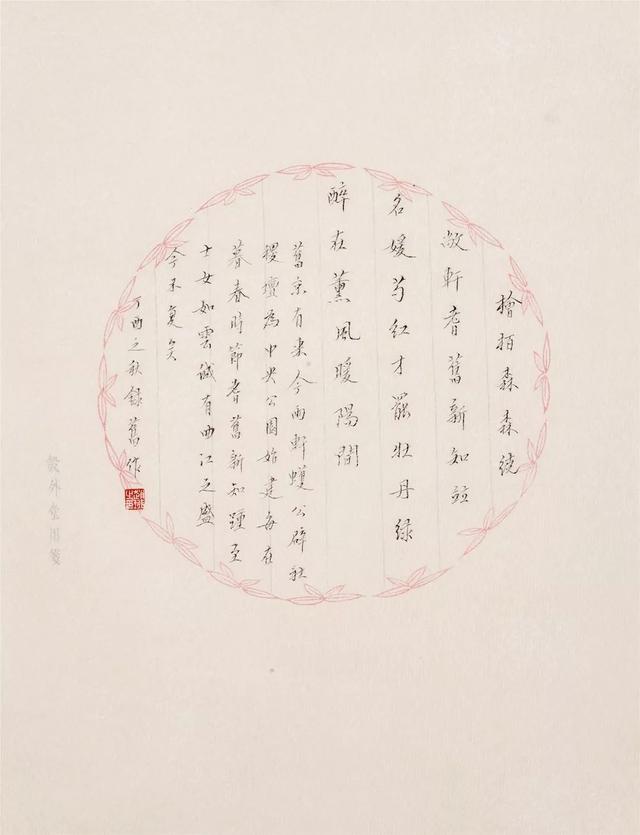 檜栢森森繞
敞軒耆舊新知竝
名媛芍紅才罷牡丹綠
醉在薰風暖陽間
舊京有來今雨軒蠖公辟社
稷壇為中央公園始建每在
暮春時節耆舊新知踵至
士女如雲誠有曲江之盛
今不复矣
丁酉之秋錄舊作
外堂用箋